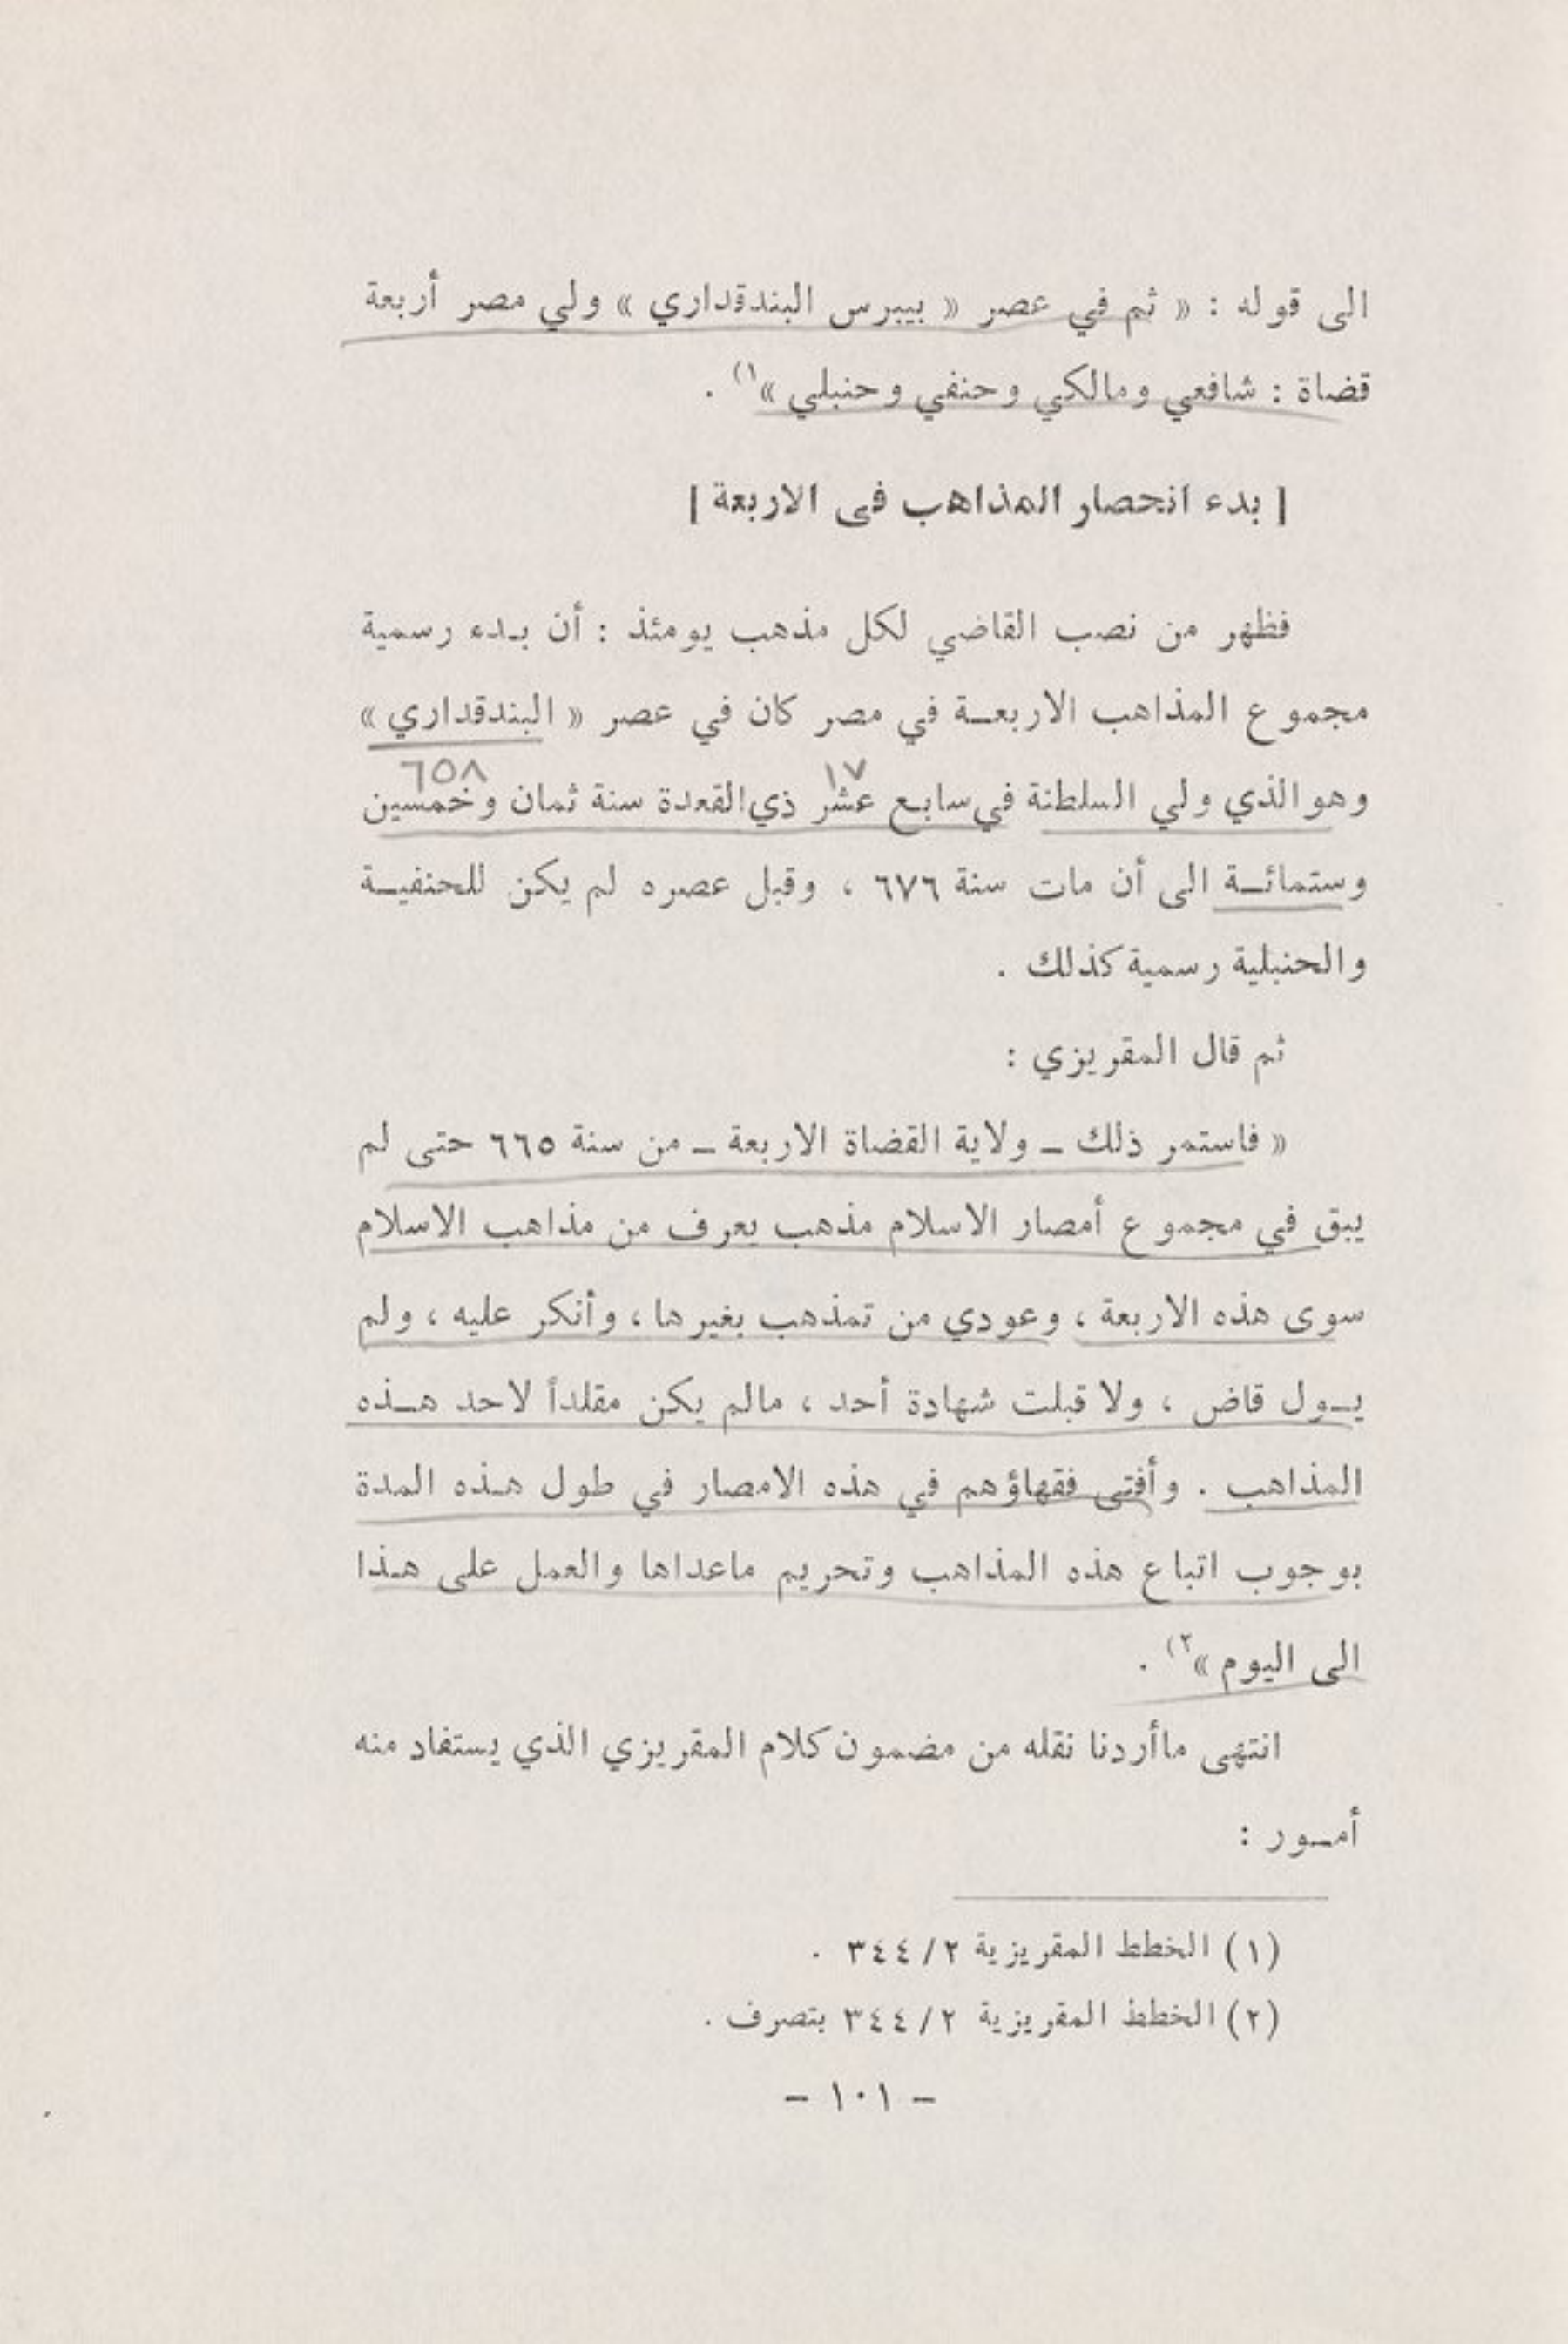 الى قوله : « ثم في عصر « بيبرس البندقداري » ولي مصر أربعة
قضاة : شافعي ومالكي وحنفي وحنبلي »(١ .
[ بدء انحصار المذاهب فى الاربعة ]
فظهر من نصب القاضي لكل مذهب يومئذ : أن بـدء رسمية
مجموع المذاهب الاربعـة في مصر كان في عصر « البندقداري »
١٧ ٦٥٨
وهو الذي ولي السلطنة في سابع عشر ذي القعدة سنة ثمان وخمسين
وستمائـة الى أن مات سنة ٦٧٦ ، وقبل عصره لم يكن للحنفيـة
والحنبلية رسمية كذلك .
ثم قال المقريزي :
« فاستمر ذلك ـ ولاية القضاة الاربعة ـ من سنة ٦٦٥ حتى لم
يبق في مجموع أمصار الاسلام مذهب يعرف من مذاهب الاسلام
سوى هذه الاربعة ، وعودي من تمذهب بغيرها ، وأنكر عليه ، ولم
يـول قاض ، ولا قبلت شهادة أحد ، مالم يكن مقلداً لاحد هـذه
المذاهب . وأفتى فقهاؤهم في هذه الامصار في طول هـذه المدة
بوجوب اتباع هذه المذاهب وتحريم ماعداها والعمل على هـذا
الى اليوم »(٢ .
انتهى ماأردنا نقله من مضمون كلام المقريزي الذي يستفاد منه
أمـور :
(١) الخطط المقريزية ٢/٣٤٤ .
(٢) الخطط المقريزية ٢/٣٤٤ بتصرف .
- ١٠١ -